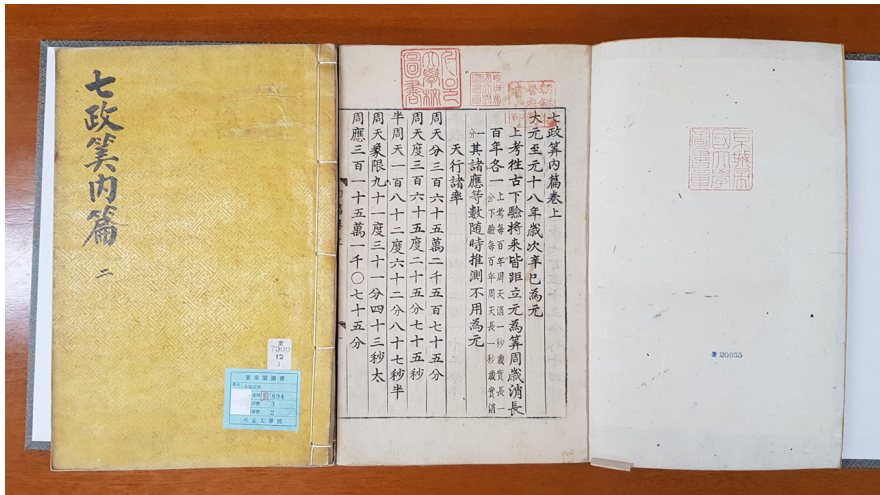 七政筭内篇 二
奎
7300
12
2
奎章閣圖書
894
3
2
서울大學校
七政筭内篇卷上
大元至元十八年歲次辛巳為元
上考徃古下驗將來皆距立元為筭周歲消長
百年各一 上考每百年周天消一秒歲實長一分下驗每百年周天長一秒歲實消一分
其諸應等數随時推測不用為元
天行諸率
周天分三百六十五萬二千五百七十五分
周天度三百六十五度二十五分七十五秒
半周天一百八十二度六十二分八十七秒半
周天象限九十一度三十一分四十三秒太
周應三百一十五萬一千〇七十五分
서울大學校圖書
京城帝國大學圖書章
奎 26955